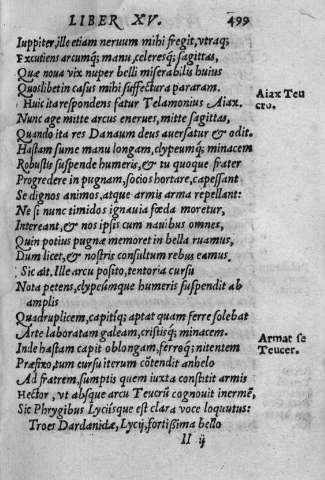 LIBER XV. 499
Iuppiter, ille etiam neruum mihi fregit, vtraq;
Excutiens arcumq; manu, celeresq; sagittas,
Quæ noua vix nuper belli miserabilis huius
Quoslibet in casus mihi suffectura pararam.
Huic ita respondens fatur Telamonius Aiax.
Aiax Teu
cro.
Nunc age mitte arcus enerues, mitte sagittas,
Quando ita res Danaum deus auersatur & odit.
Hastam sume manu longam, clypeumq; minacem
Robustis suspende humeris, & tu quoque frater
Progredere in pugnam, socios hortare, capessant
Se dignos animos, atque armis arma repellant:
Ne si nunc timidos ignauia fœda moretur,
Intereant, & nos ipsis cum nauibus omnes,
Quin potius pugnæ memoret in bella ruamus,
Dum licet, & nostris consultum rebus eamus
Sic ait. Ille arcu posito, tentoria cursu
Nota petens, clypeúmque humeris suspendit ab
amplis
Quadruplicem, capitíq; aptat quam ferre solebat
Arte laboratam galeam, cristisq; minacem.
Armat se
Teucer.
Inde hastam capit oblongam, ferroq; nitentem
Præfixo, tum cursu iterum cōtendit anhelo
Ad fratrem, sumptis quem iuxta constitit armis
Hector, vt absque arcu Teucrū cognouit inermē,
Sic Phrygibus Lyciísque est clara voce loquutus:
Troes Dardanidæ, Lycij, fortissima bello
II ij